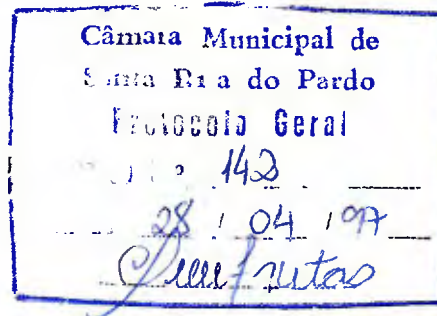 Câmara Municipal de
Santa Rita do Pardo
Protocolo Geral
142
28 / 04 / 97